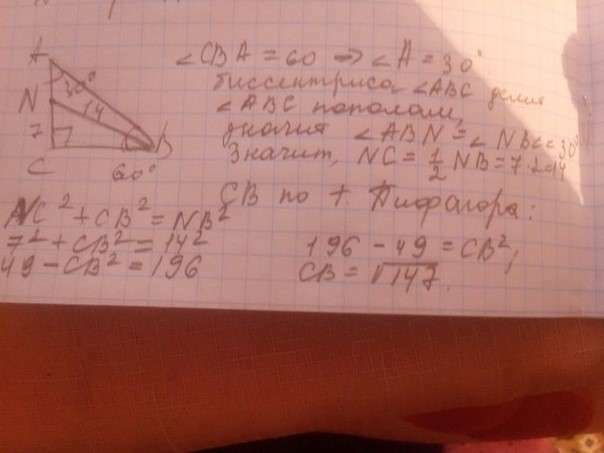 A
30°
N
14
7
C
B
60°
∠CBA = 60 ⇒ ∠A = 30°
биссектриса ∠ABC делит
∠ABC пополам,
значит ∠ABN = ∠NBC = 30°
Значит, NC = 1/2 NB = 7·2=14
CB по т. Пифагора:
NC² + CB² = NB²
7² + CB² = 14²
49 - CB² = 196
196 - 49 = CB²,
CB = √147.